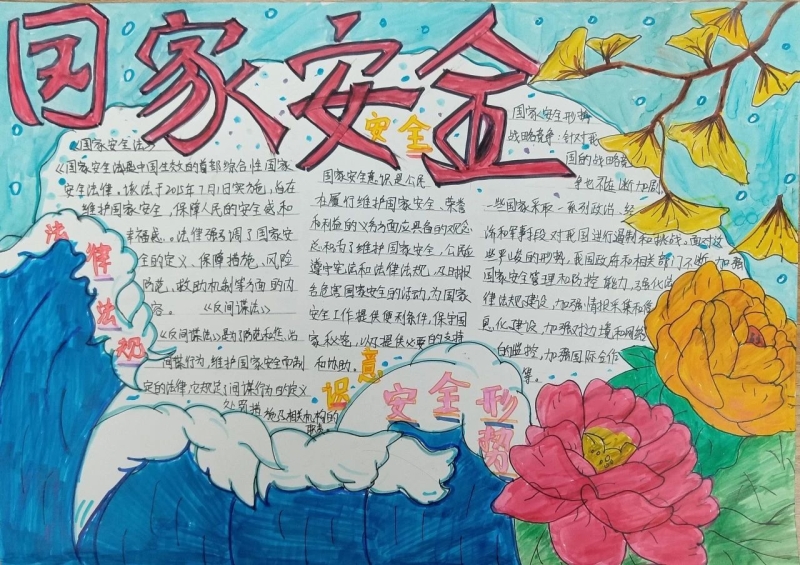 国家安全
《国家安全法》
《国家安全法》是中国生效的首部综合性国家
安全法律。该法于2015年7月1日实施，旨在
维护国家安全，保障人民的安全感和
幸福感。法律强调了国家安
全的定义、保障措施、风险
防范、救助机制等方面的内
容。
《反间谍法》
《反间谍法》是为了防范和惩治
间谍行为，维护国家安全而制
定的法律，它规定了间谍行为的定义
处罚措施及相关机构的
职责
法律法规
安全
意识
国家安全意识是公民
在履行维护国家安全、荣誉
和利益的义务方面应具备的观念
这包括了维护国家安全，公民应
遵守宪法和法律法规，及时报
告危害国家安全的活动，为国家
安全工作提供便利条件，保守国
家秘密，以及提供必要的支持
和协助。
国家安全形势
战略竞争：针对我
国的战略竞
争也不断加剧
一些国家采取一系列政治、经
济和军事手段对我国进行遏制和挑战。面对这
些严峻的形势，我国政府和相关部门不断加强
国家安全管理和防控能力，强化法
律法规建设，加强情报采集和信
息化建设，加强对边境和网络
的监控，加强国际合作
等。
安全形势